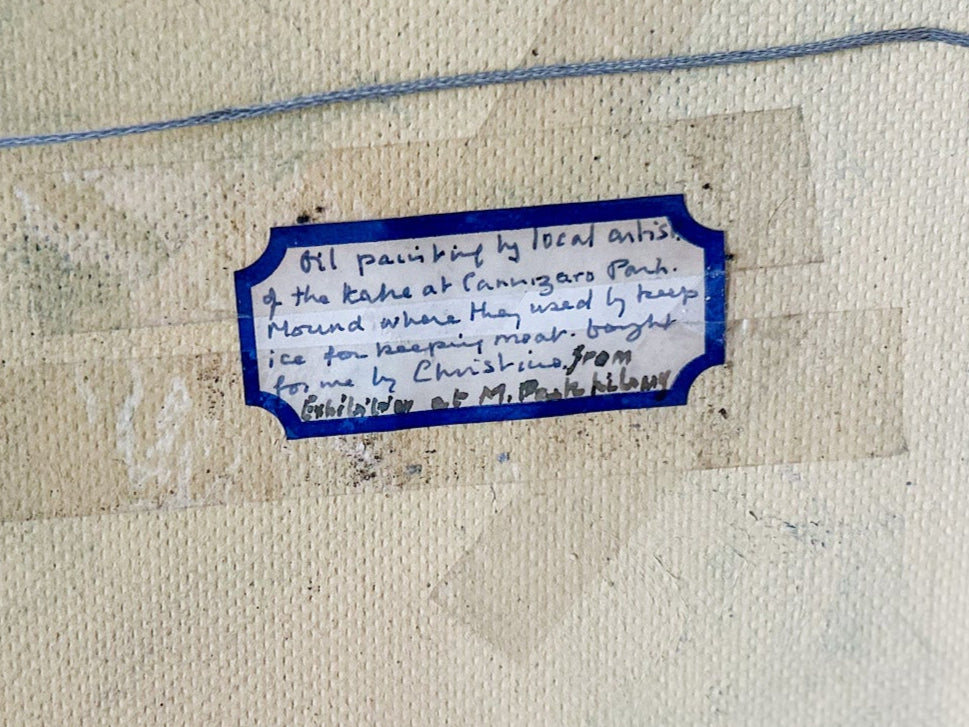 Oil painting by local artist
of the Lake at Cannizaro Park.
Mound where they used to keep
ice for keeping meat. bought
for me by Christine. from
Exhibition at M. Park Library